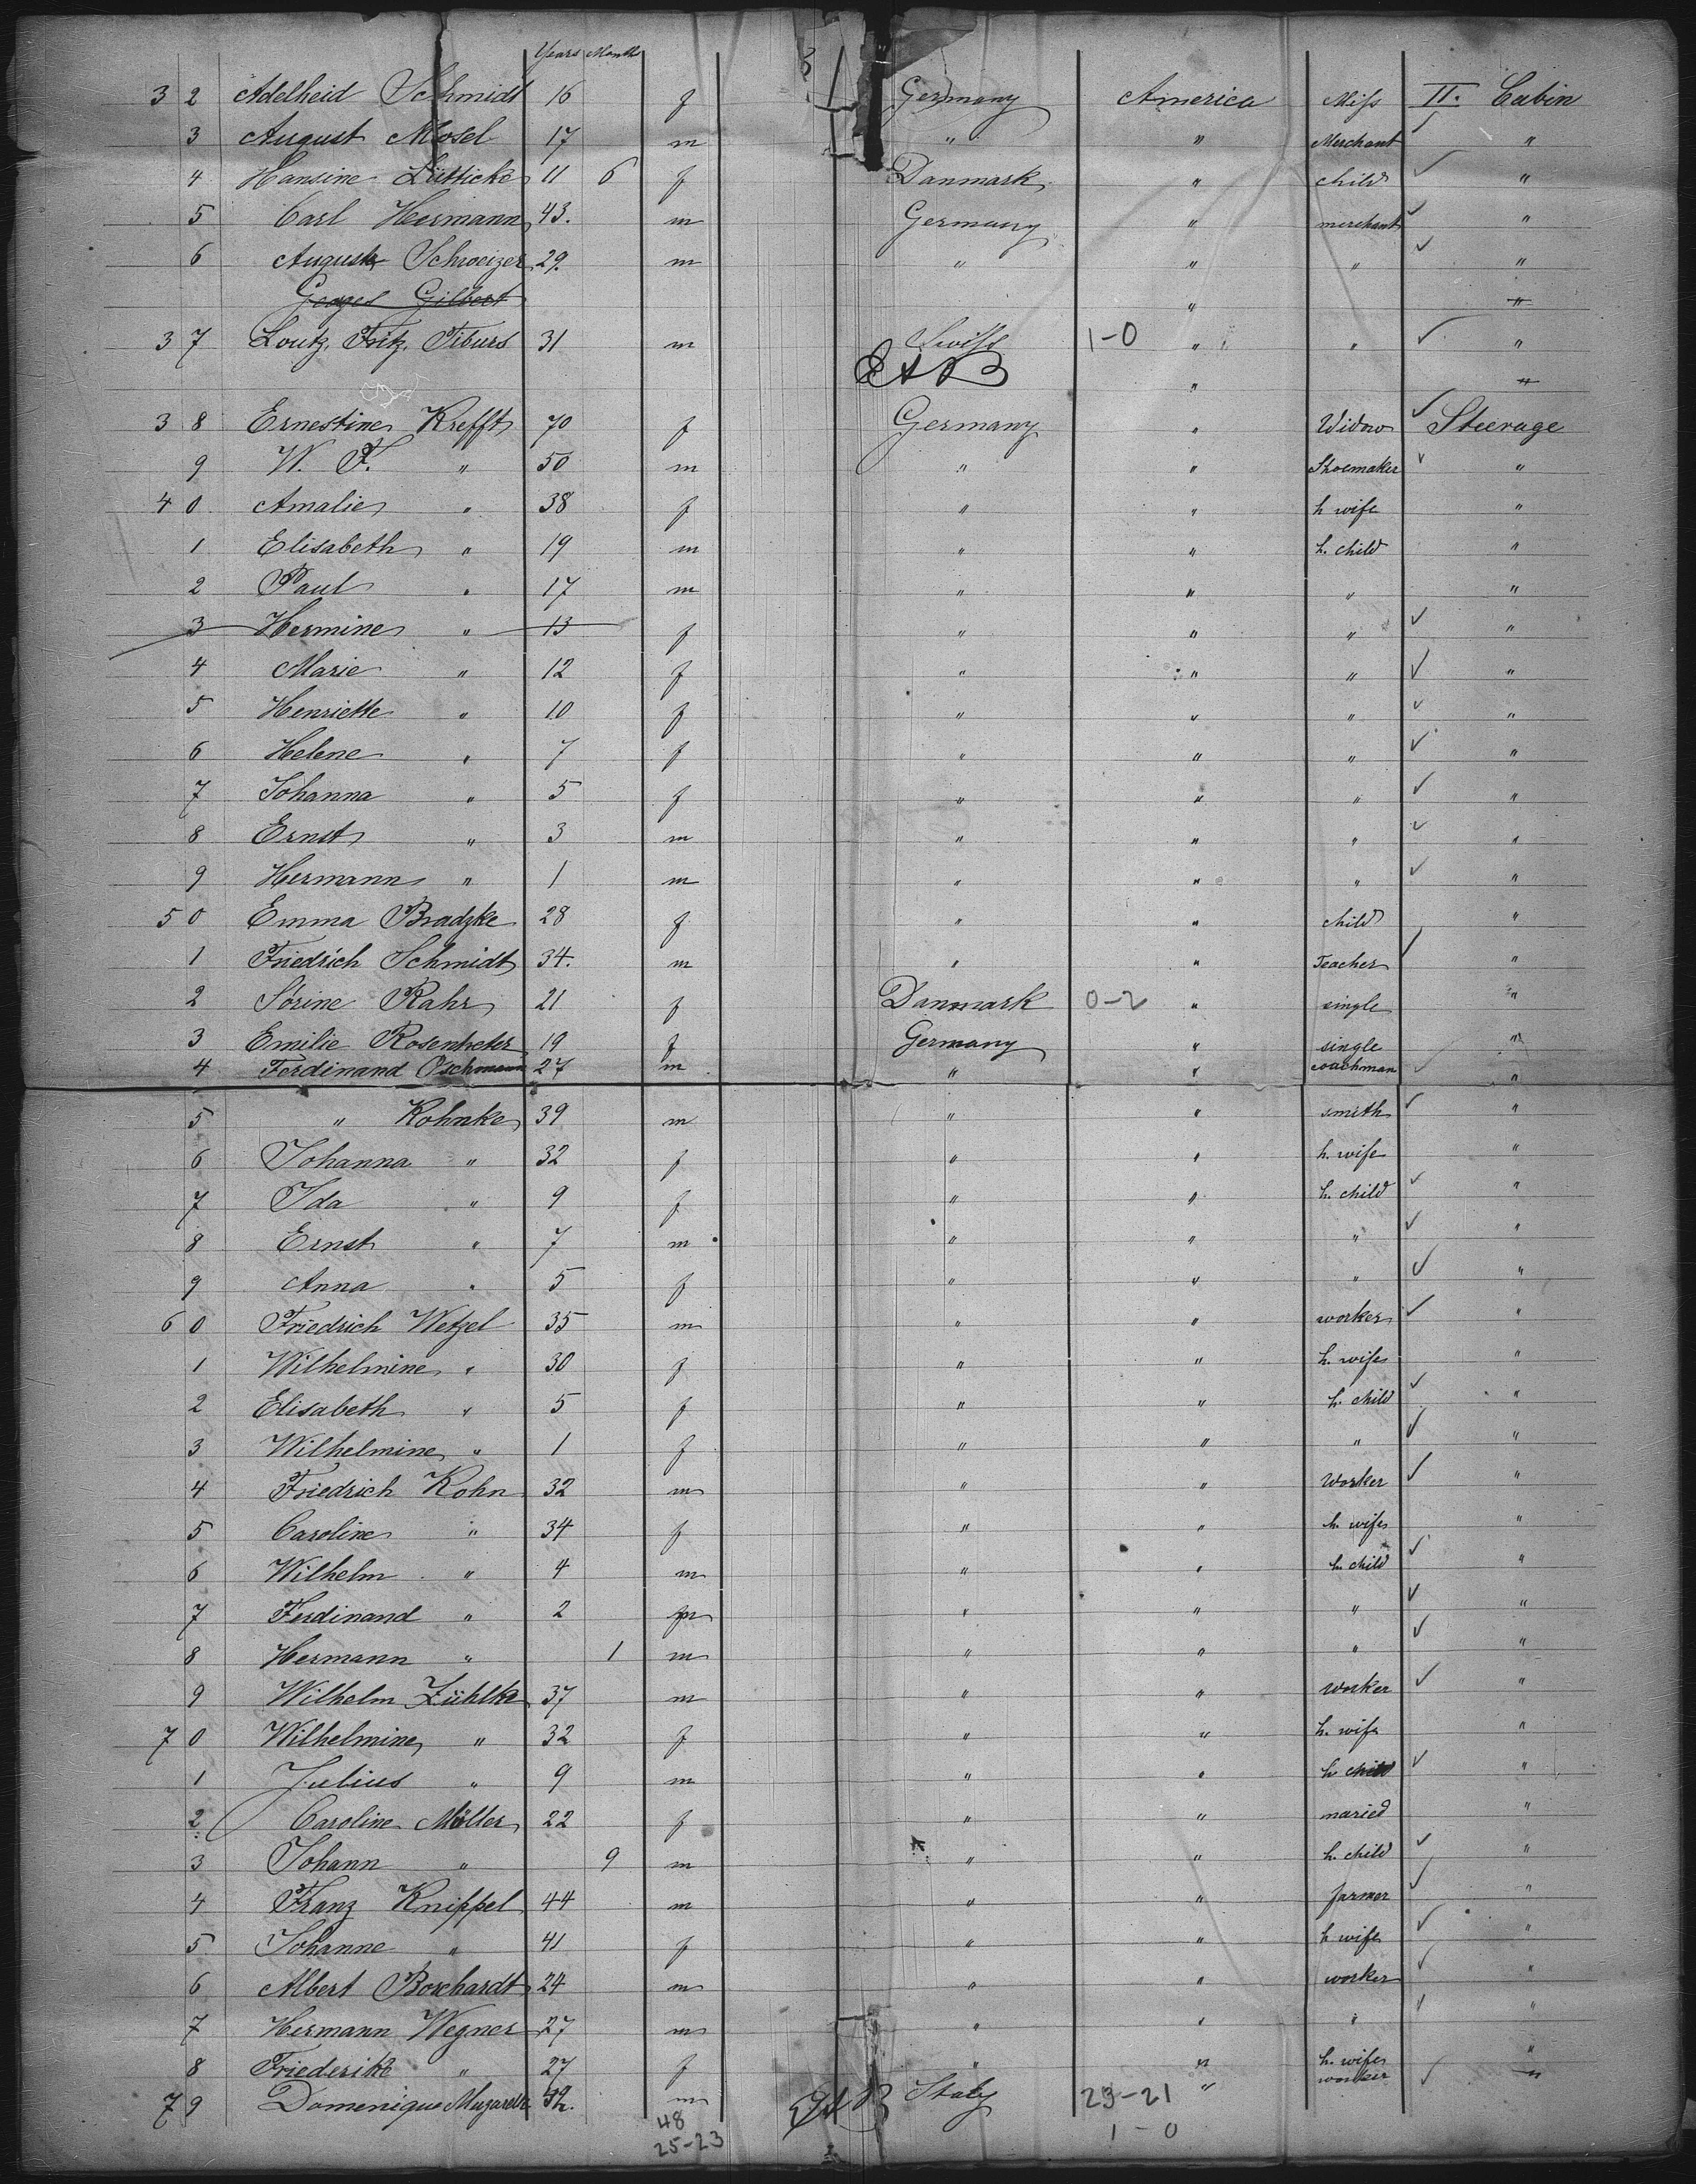 Years Month
3 2 Adelheid Schmidt 16 f Germany America Miss II. Cabin
3 August Mosel 17 m " " Merchant "
4 Hansine Lütticke 11 6 f Danmark " child "
5 Carl Hermann 43. m Germany " merchant "
6 August Schweizer 29. m " " " "
Georges Gilbert " "
3 7 Loutz, Fritz, Tiburs 31 m Swiss 1-0 " " "
" "
3 8 Ernestine Krefft 70 f Germany " Widow Steerage
9 W. F. " 50 m " " Shoemaker "
4 0 Amalie " 38 f " " h wife "
1 Elisabeth " 19 m " " h. child "
2 Paul " 17 m " " " "
3 Hermine " 13 f " " " "
4 Marie " 12 f " " " "
5 Henriette " 10 f " " " "
6 Helene " 7 f " " " "
7 Johanna " 5 f " " " "
8 Ernst " 3 m " " " "
9 Hermann " 1 m " " " "
5 0 Emma Bradzke 28 f " " child "
1 Friedrich Schmidt 34. m " " Teacher "
2 Sörine Rahr 21 f Danmark 0-2 " single "
3 Emilie Rosenheter 19 f Germany " single "
4 Ferdinand Oschmann 27 m " " coachman "
5 " Kohnke 39 m " " smith "
6 Johanna " 32 f " " h. wife "
7 Ida " 9 f " " h. child "
8 Ernst " 7 m " " " "
9 Anna " 5 f " " " "
6 0 Friedrich Wetzel 35 m " " worker "
1 Wilhelmine " 30 f " " h. wife "
2 Elisabeth " 5 f " " h. child "
3 Wilhelmine " 1 f " " " "
4 Friedrich Kohn 32 m " " Worker "
5 Caroline " 34 f " " h. wife "
6 Wilhelm " 4 m " " h. child "
7 Ferdinand " 2 m " " " "
8 Hermann " 1 m " " " "
9 Wilhelm Zühlke 37 m " " worker "
7 0 Wilhelmine " 32 f " " h. wife "
1 Julius " 9 m " " h child "
2 Caroline Möller 22 f " " maried "
3 Johann " 9 m " " h. child "
4 Franz Knippel 44 m " " farmer "
5 Johanne " 41 f " " h wife "
6 Albert Borchardt 24 m " " worker "
7 Hermann Wegner 27 m " " " "
8 Friederike " 27 f " " h. wife "
7 9 Domenique m Italy 23-21 " worker "
48 1-0
25-23